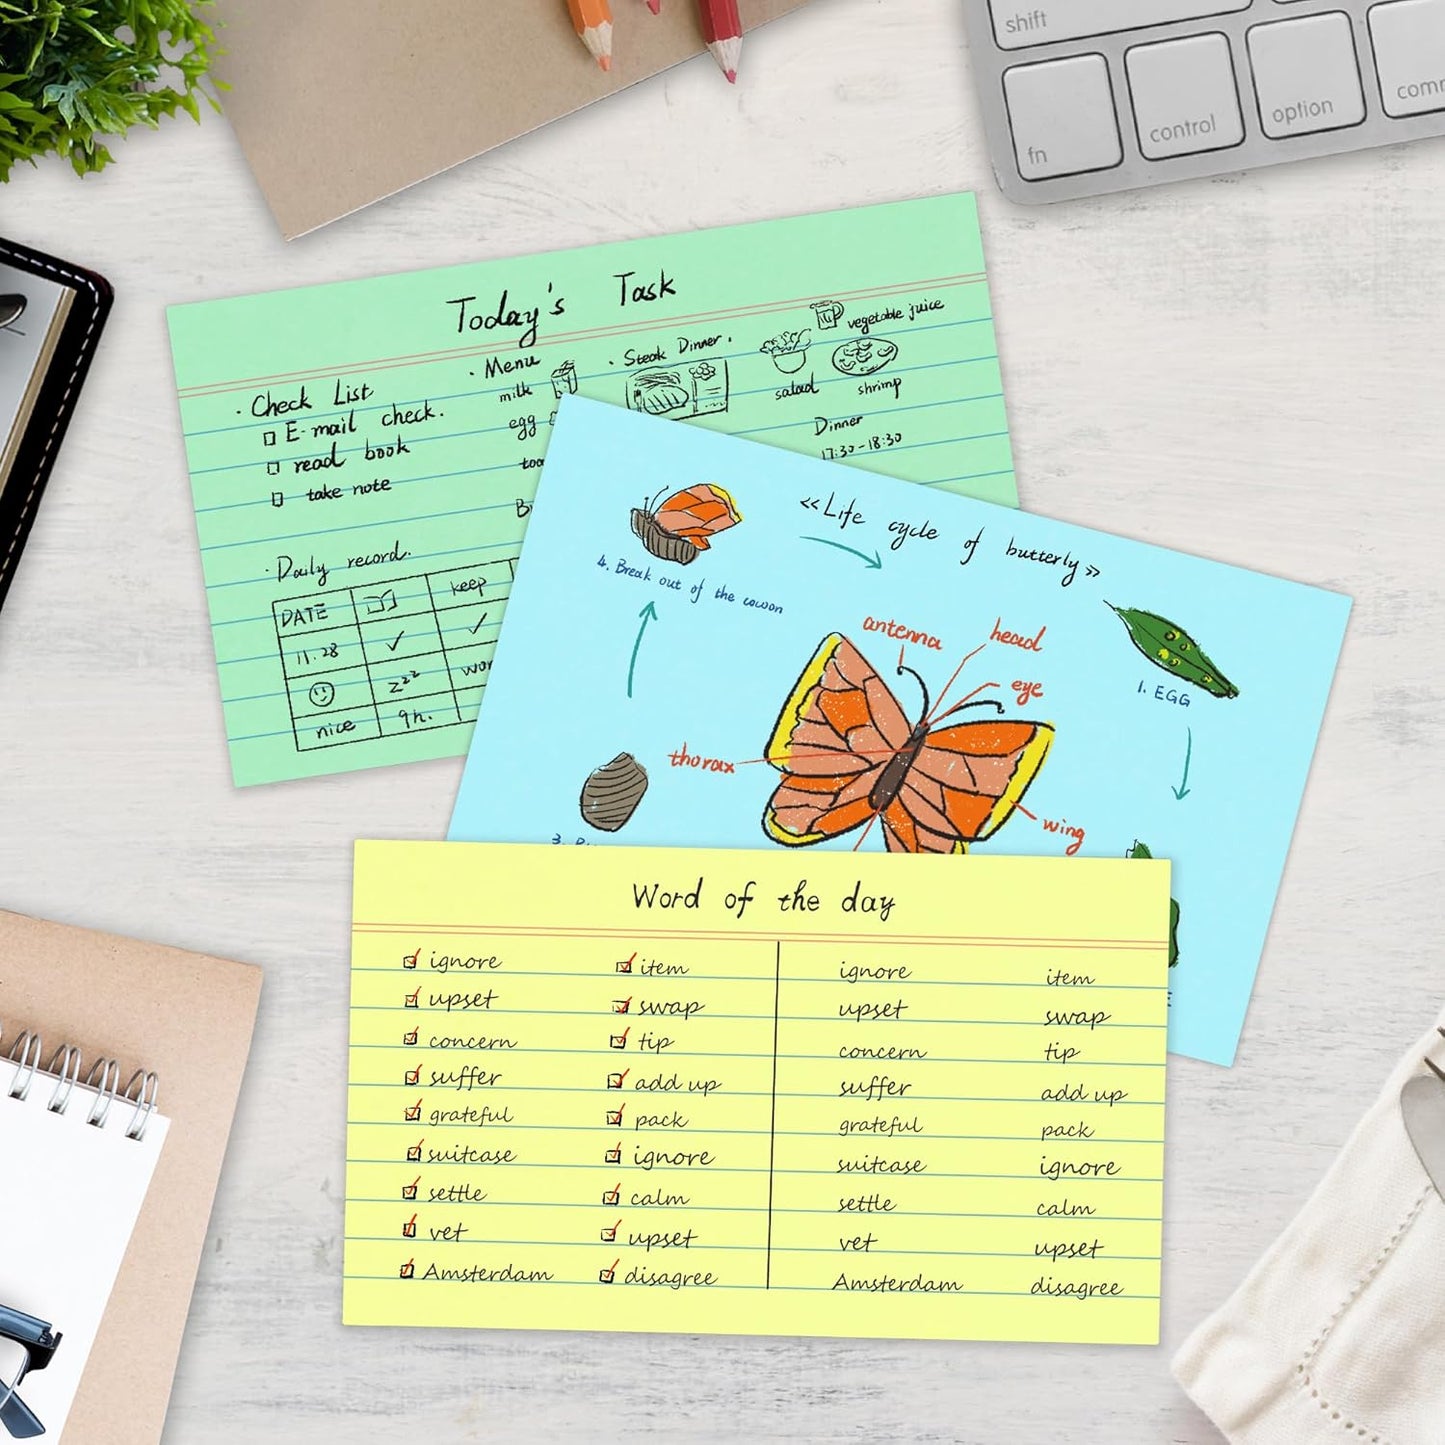 shift
fn
control
option
Today's Task
· Check List
E-mail check.
read book
take note
· Menu
milk
egg
· Steak Dinner.
salad
vegetable juice
shrimp
Dinner
17:30-18:30
· Daily record.
DATE keep
11.28 ✓ ✓
zzz
nice 9h.
<<Life cycle of butterfly>>
4. Break out of the cocoon
antenna
head
eye
thorax
wing
1. EGG
Word of the day
ignore item ignore item
upset swap upset swap
concern tip concern tip
suffer add up suffer add up
grateful pack grateful pack
suitcase ignore suitcase ignore
settle calm settle calm
vet upset vet upset
Amsterdam disagree Amsterdam disagree